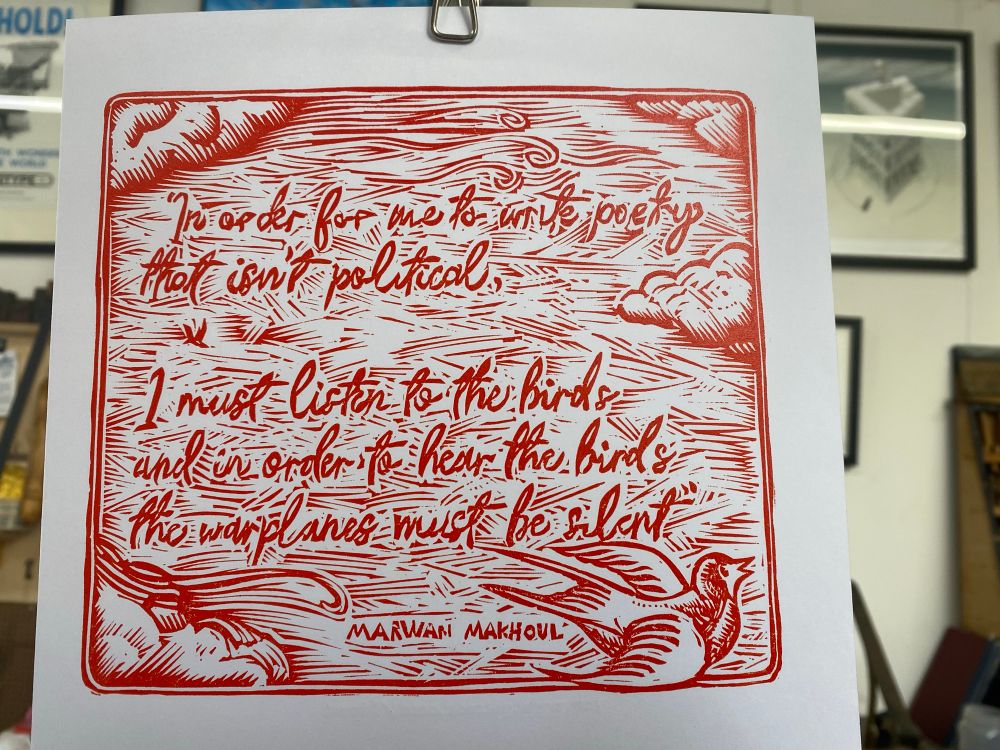 HOLD!
"In order for me to write poetry
that isn't political,
I must listen to the birds
and in order to hear the birds
the warplanes must be silent"
MARWAN MAKHOUL